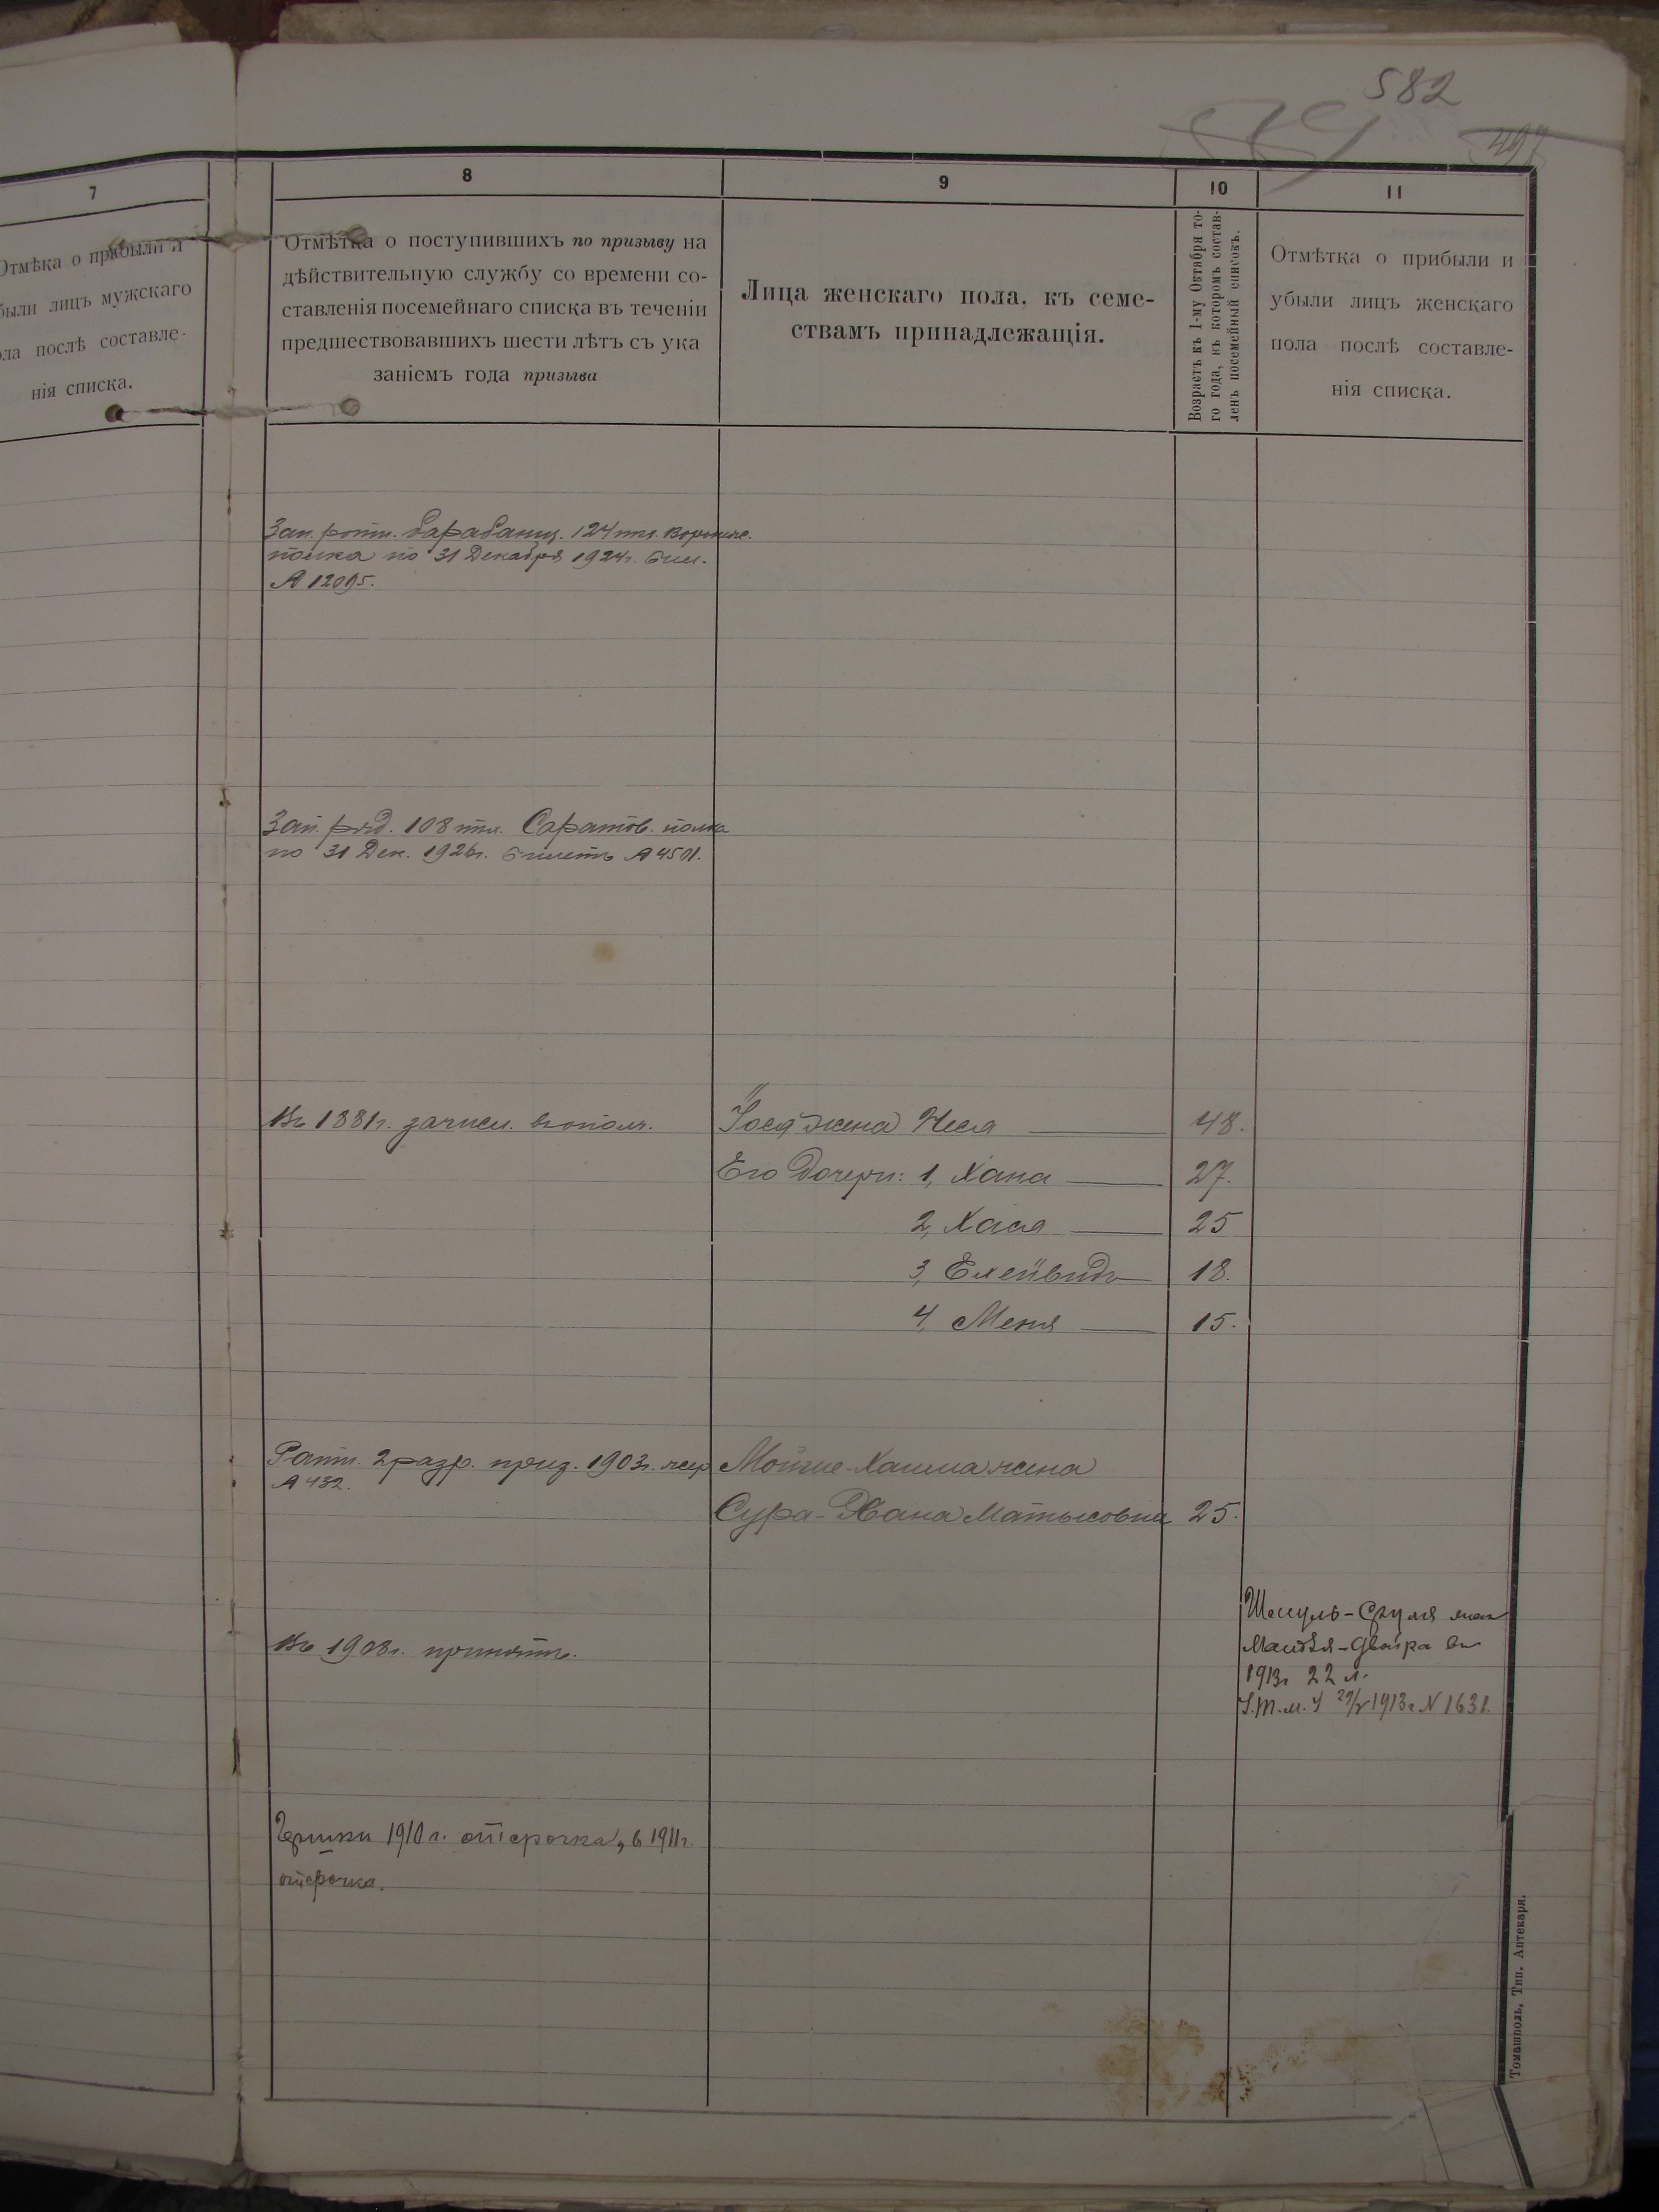 582
7
Отмѣка о прибыли и
были лицъ мужскаго
ла послѣ составле-
нія списка.
8
Отмѣтка о поступившихъ по призыву на
дѣйствительную службу со времени со-
ставленія посемейнаго списка въ теченіи
предшествовавшихъ шести лѣтъ съ ука
заніемъ года призыва
9
Лица женскаго пола, къ семе-
ствамъ принадлежащія.
10
Возрастъ къ 1-му Октября то-
го года, въ которомъ состав-
ленъ посемейный списокъ.
11
Отмѣтка о прибыли и
убыли лицъ женскаго
пола послѣ составле-
нія списка.
Зап. ротн. барабанщ. 124 пѣх. Воронеж.
полка по 31 Декабря 1924г. бил.
№ 12095.
Зап. ряд. 108 пѣх. Саратов. полка
по 31 Дек. 1926г. билетъ № 4501.
Въ 1881г. зачисл. в ополч.
Іося жена Неся 48.
Его дочери: 1, Хана 27.
2, Хася 25
3, Ехейвидъ 18.
4, Меня 15.
Ратн. 2 разр. приз. 1903г. жер
№ 432.
Мойше-Хаима жена
Сура-Хана Матысовна 25.
Въ 1908г. принятъ.
Шмуль-Сруля жена
Двойра въ
1913г 22 л.
1913г N 1631.
1910 г. отсрочка, в 1911г.
отсрочка.
Томашполь, Тип. Аптекаря.